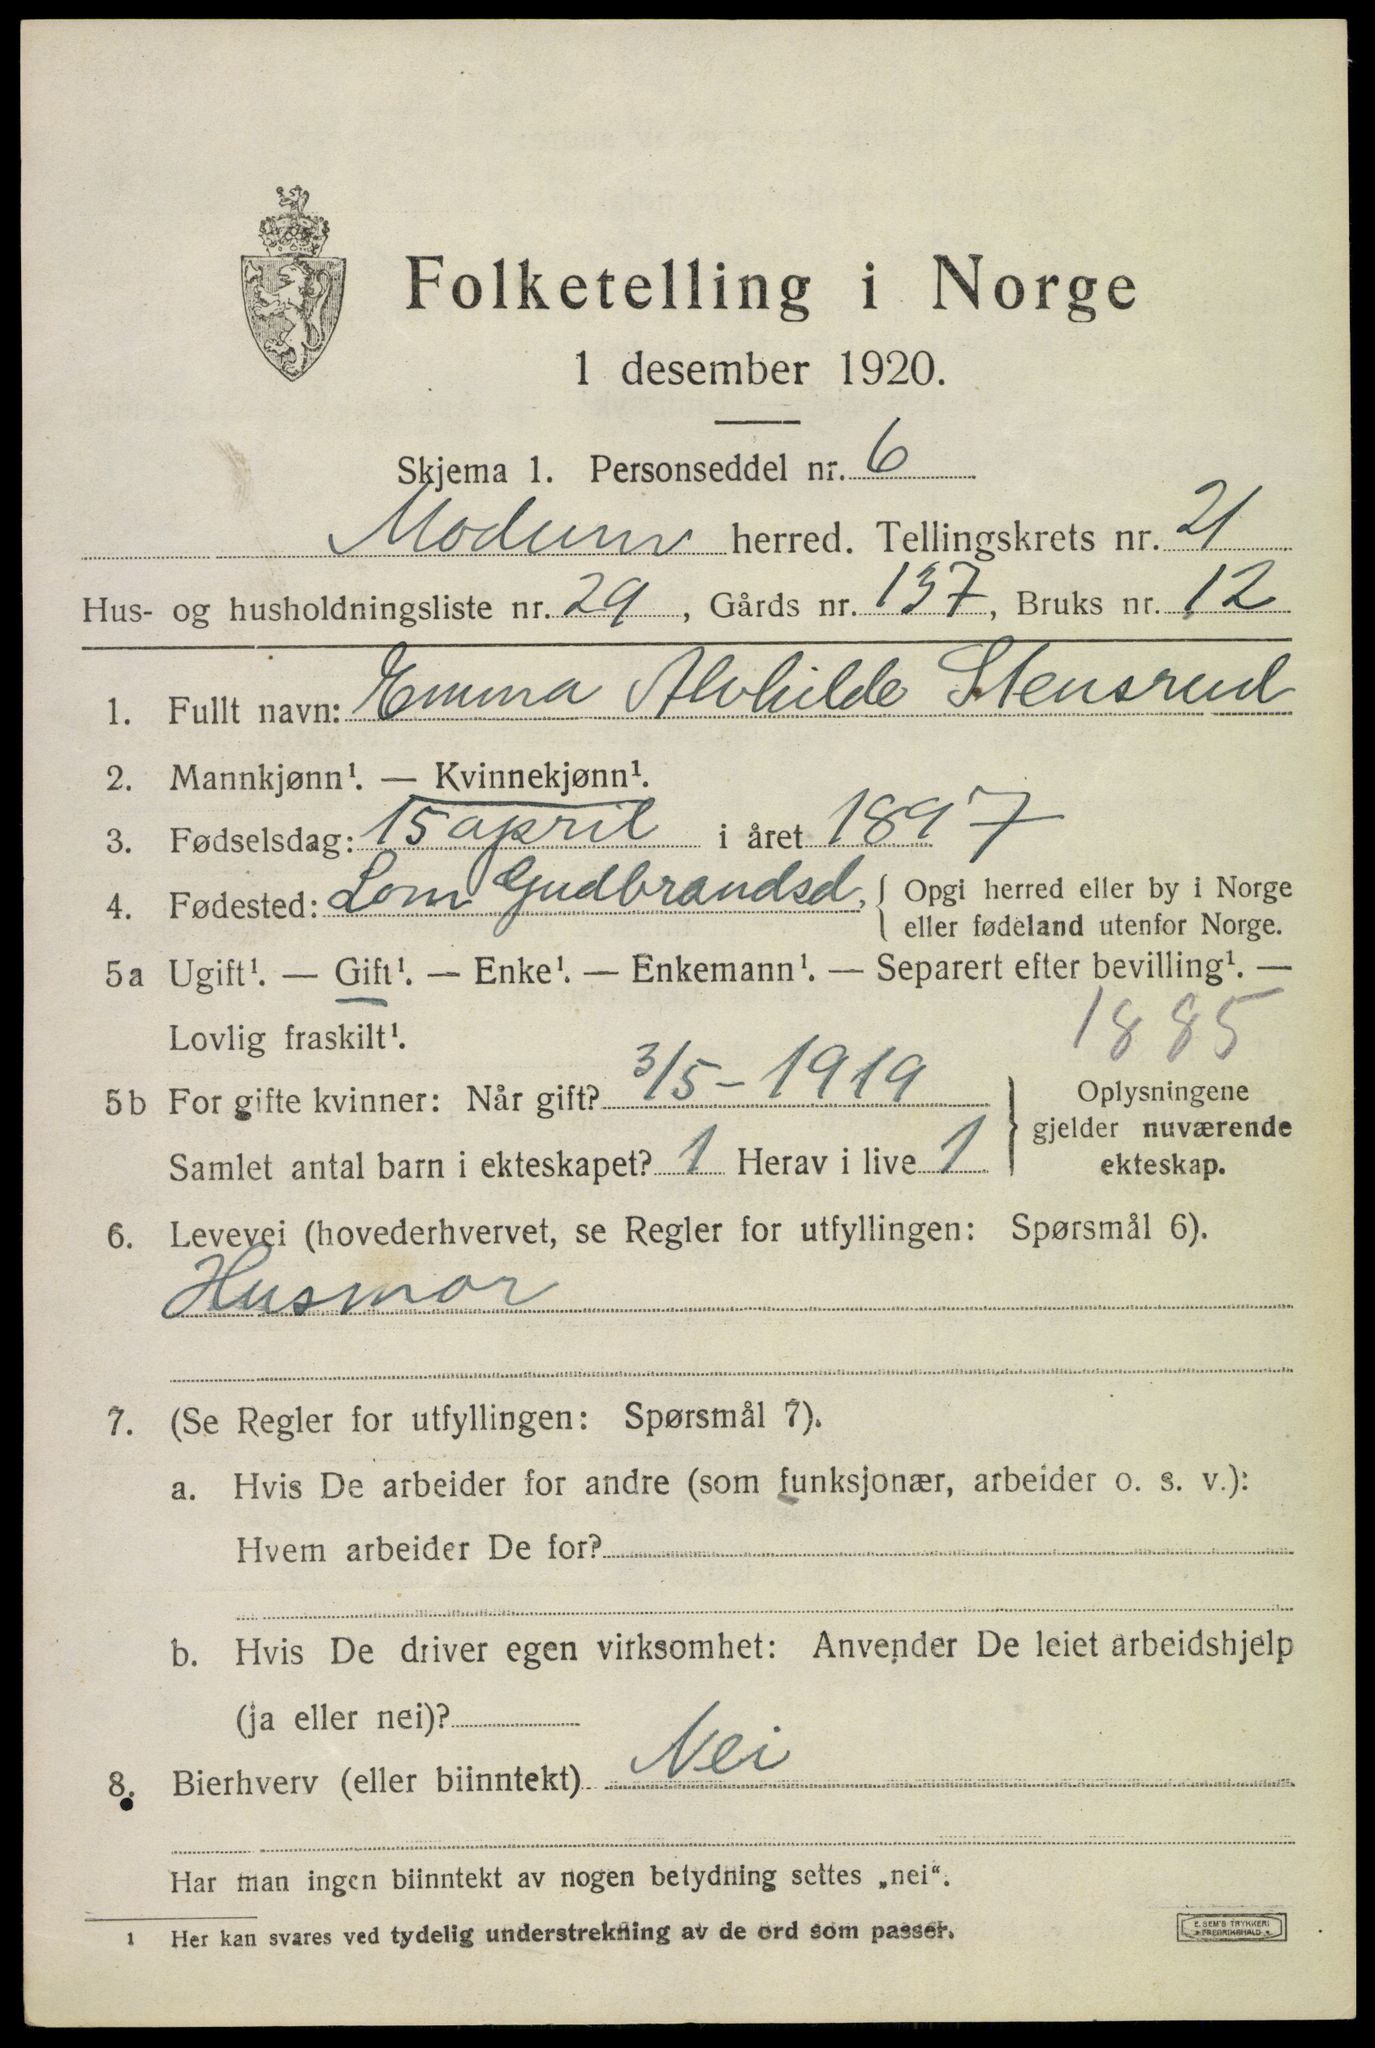 Folketelling i Norge
1 desember 1920.
Skjema 1. Personseddel nr. 6
Modum herred. Tellingskrets nr. 21
Hus- og husholdningsliste nr. 29, Gårds nr. 137, Bruks nr. 12
1. Fullt navn: Emma Alvhilde Stensrud
2. Mannkjønn¹. — Kvinnekjønn¹.
3. Fødselsdag: 15 april i året 1897
4. Fødested: Lom Gudbrandsd. { Opgi herred eller by i Norge
eller fødeland utenfor Norge.
5a Ugift¹. — Gift¹. — Enke¹. — Enkemann¹. — Separert efter bevilling¹. —
Lovlig fraskilt¹. 1885
5b For gifte kvinner: Når gift? 3/5 - 1919 } Oplysningene
gjelder nuværende
Samlet antal barn i ekteskapet? 1 Herav i live 1 ekteskap.
6. Levevei (hovederhvervet, se Regler for utfyllingen: Spørsmål 6).
Husmor
7. (Se Regler for utfyllingen: Spørsmål 7).
a. Hvis De arbeider for andre (som funksjonær, arbeider o. s. v.):
Hvem arbeider De for?
b. Hvis De driver egen virksomhet: Anvender De leiet arbeidshjelp
(ja eller nei)?
8. Bierhverv (eller biinntekt) Nei
Har man ingen biinntekt av nogen betydning settes „nei“.
1 Her kan svares ved tydelig understrekning av de ord som passer.
E. SEM'S TRYKKERI
FREDRIKSHALD